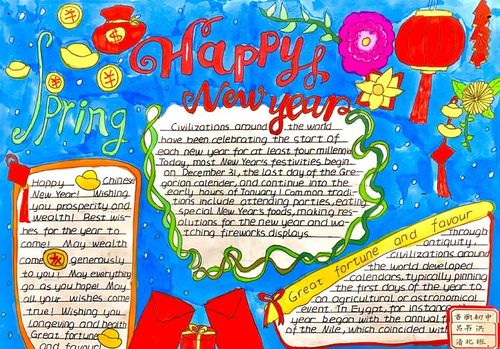 Happy
New year
Spring
Civilizations around the world
have been celebrating the start of
each new year for at least four millennia
Today, most New Year's festivities begin
on December 31, the last day of the Gre-
gorian calender, and continue into the
early hours of January 1. Common tradi-
tions include attending parties, eating
special New Year's foods, making res-
olutions for the new year and wa-
tching fireworks displays.
Happy Chinese
New Year! Wishing
you prosperity and
wealth! Best wis-
hes for the year to
come! May wealth
come generously
to you! May everything
go as you hope! May
all your wishes come
true! Wishing you
Longeving and health
Great fortune
and favour!
Great fortune and favour
through
antiquity,
civilizations around
the world developed
calendars, typically pinning
the first days of the year to
an agricultural or astronomical
event. In Eygpt, for instance
year began with the annual f
of the Nile, which coincided with
香丽初中
吕书洪
清北班